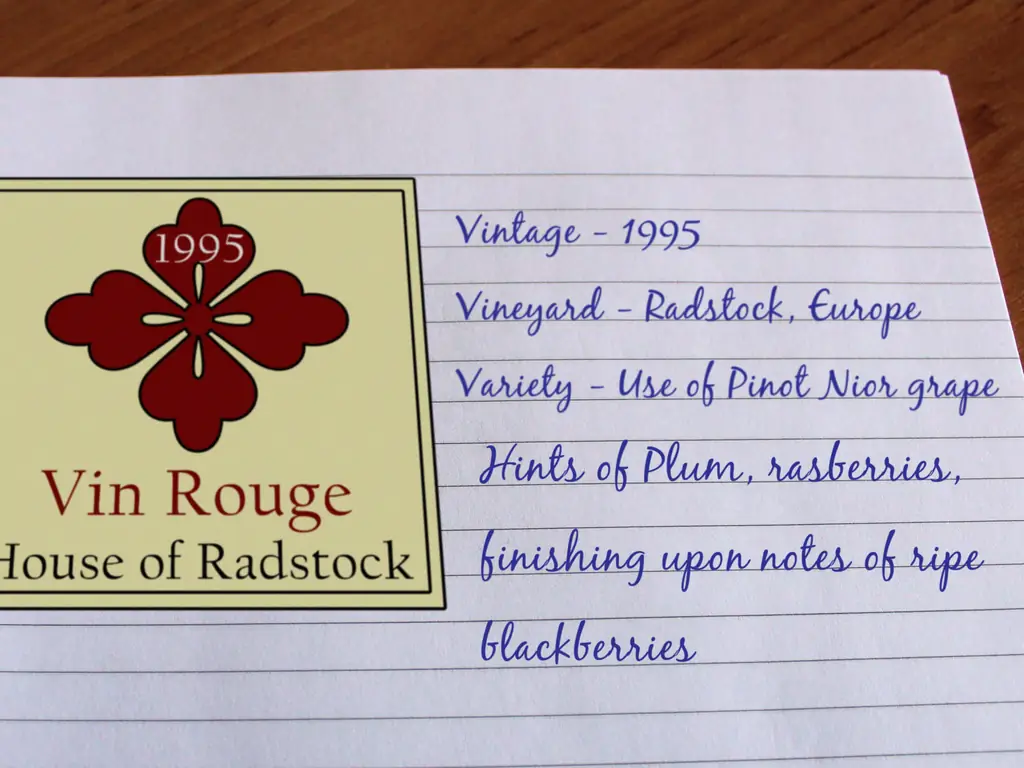 1995
Vin Rouge
House of Radstock
Vintage - 1995
Vineyard - Radstock, Europe
Variety - Use of Pinot Nior grape
Hints of Plum, rasberries,
finishing upon notes of ripe
blackberries